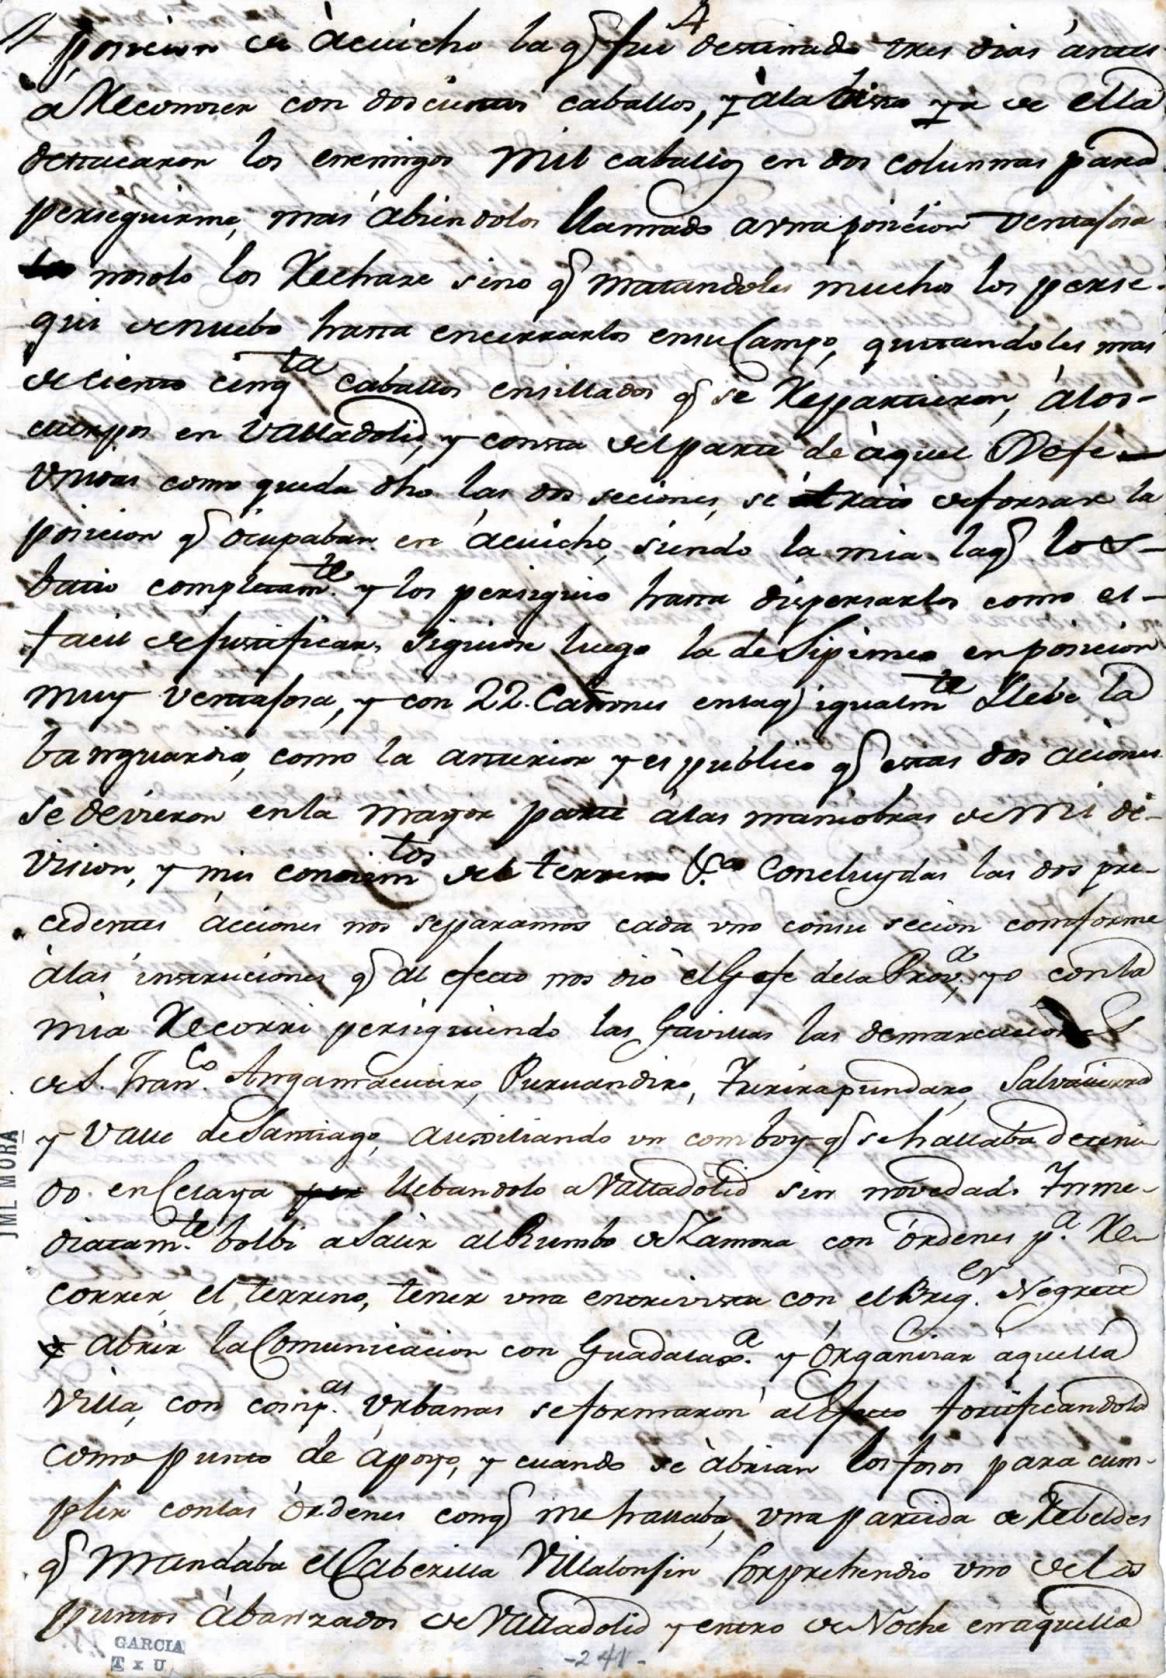 posicion de àcuicho la q̃ fui destinado tres dias àntes
a Reconoser con doscientos caballos, y àla vista ya de ella
destacaron los enemigos mil caballos en dos colunnas para
perseguirme, mas àbiendolos llamado auna posicion ventajosa
nosolo los Rechase sino q̃ matandoles muchos los perse-
gui denuebo hasta encerrarlos ensu Campo, quitandoles mas
deciento cinq.ta caballos ensillados q̃ se Repartieron, àlos-
cuerpos en Valladolid, y consta delparte de àquel Gefe
Vnidas como queda dho las dos seciones, se trató deforsar la
posicion q̃ òcupaban en àcuicho, siendo la mia laq̃ los-
batio completam.te y los persiguio hasta dispersarlos como es-
facil dejustificar. Siguiose luego la de Sipimeo enposicion
muy ventajosa, y con 22. Cañones enlaq̃ igualm.te Llebe la
banguardia, como la anterior y es publico q̃ estas dos aciones
se devieron enla mayor parte àlas maniobras de mi di-
vision, y mis conocim.tos del terreno &.a Concluydas las dos pre-
cedentes àcciones nos separamos cada uno consu secion comforme
àlas instruciones q̃ al efecto nos diò el Gefe dela Prov.a, yo conla
mia Recorri persiguiendo las Gavillas las demarcaciones
de S. Fran.co Angamacutiro, Puruandiro, Yurirapundaro, Salvatierra
y Valle de Santiago, auxiliando un comboy q̃ se hallaba deteni-
do en Celaya llebandolo a Valladolid sin novedad. Ynme-
diatam.te bolbi a Salir al Rumbo de Zamora con òrdenes p.a Re-
correr el terreno, tener una entrevista con el Brig.er Negrete
y abrir la Comunicacion con Guadalax.a y Organisar àquella
villa, con comp.as Urbanas seformaron al Efecto fortificandola
como punto de àpoyo, y cuando se àbrian los fosos para cum-
plir conlas òrdenes conq̃ me hallaba, una partida de Rebeldes
q̃ mandaba el Cabesilla Villalonjin Sorprehendio uno delos
puntos àbanzados de Valladolid y entro de Noche enaquella
JML MORA
GARCIA
T x U
-241-